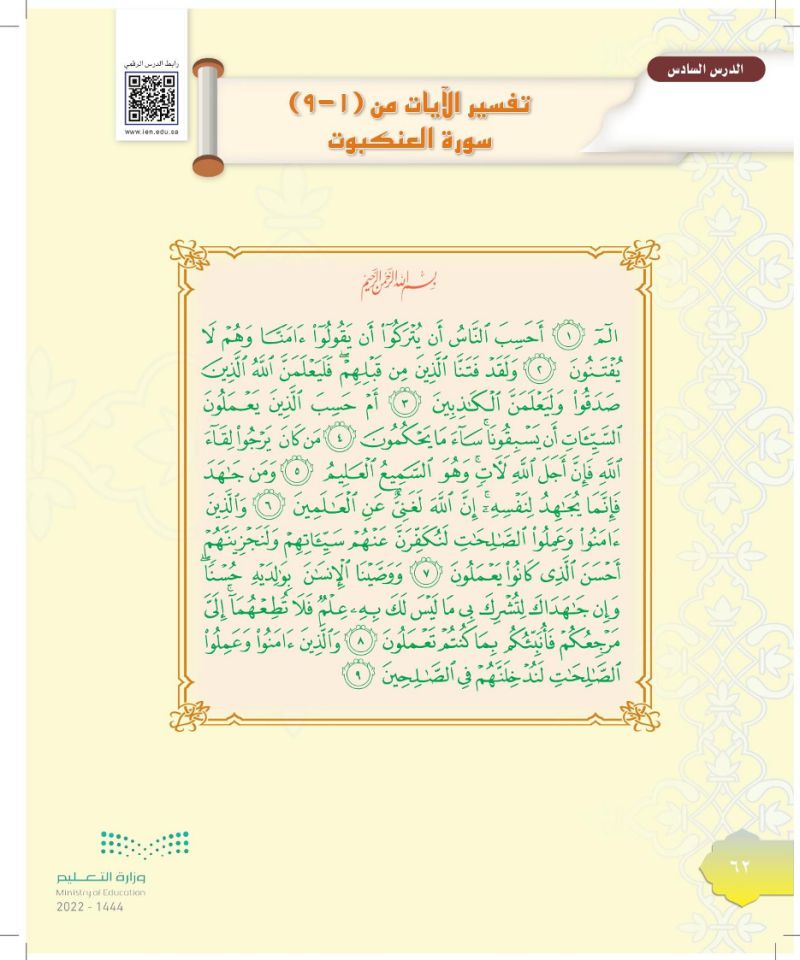 رابط الدرس الرقمي
www.ien.edu.sa
الدرس السادس
تفسير الآيات من (١-٩)
سورة العنكبوت
بِسْمِ اللَّهِ الرَّحْمَنِ الرَّحِيمِ
الٓمٓ ١ أَحَسِبَ ٱلنَّاسُ أَن يُتْرَكُوٓا۟ أَن يَقُولُوٓا۟ ءَامَنَّا وَهُمْ لَا
يُفْتَنُونَ ٢ وَلَقَدْ فَتَنَّا ٱلَّذِينَ مِن قَبْلِهِمْ ۖ فَلَيَعْلَمَنَّ ٱللَّهُ ٱلَّذِينَ
صَدَقُوا۟ وَلَيَعْلَمَنَّ ٱلْكَـٰذِبِينَ ٣ أَمْ حَسِبَ ٱلَّذِينَ يَعْمَلُونَ
ٱلسَّيِّـَٔاتِ أَن يَسْبِقُونَا ۚ سَآءَ مَا يَحْكُمُونَ ٤ مَن كَانَ يَرْجُوا۟ لِقَآءَ
ٱللَّهِ فَإِنَّ أَجَلَ ٱللَّهِ لَـَٔاتٍ ۚ وَهُوَ ٱلسَّمِيعُ ٱلْعَلِيمُ ٥ وَمَن جَـٰهَدَ
فَإِنَّمَا يُجَـٰهِدُ لِنَفْسِهِۦٓ ۚ إِنَّ ٱللَّهَ لَغَنِىٌّ عَنِ ٱلْعَـٰلَمِينَ ٦ وَٱلَّذِينَ
ءَامَنُوا۟ وَعَمِلُوا۟ ٱلصَّـٰلِحَـٰتِ لَنُكَفِّرَنَّ عَنْهُمْ سَيِّـَٔاتِهِمْ وَلَنَجْزِيَنَّهُمْ
أَحْسَنَ ٱلَّذِى كَانُوا۟ يَعْمَلُونَ ٧ وَوَصَّيْنَا ٱلْإِنسَـٰنَ بِوَٰلِدَيْهِ حُسْنًا ۖ
وَإِن جَـٰهَدَاكَ لِتُشْرِكَ بِى مَا لَيْسَ لَكَ بِهِۦ عِلْمٌ فَلَا تُطِعْهُمَآ ۚ إِلَىَّ
مَرْجِعُكُمْ فَأُنَبِّئُكُم بِمَا كُنتُمْ تَعْمَلُونَ ٨ وَٱلَّذِينَ ءَامَنُوا۟ وَعَمِلُوا۟
ٱلصَّـٰلِحَـٰتِ لَنُدْخِلَنَّهُمْ فِى ٱلصَّـٰلِحِينَ ٩
وزارة التعليم
Ministry of Education
2022 - 1444
٦٢